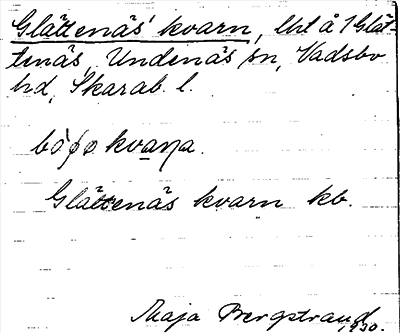 Glättenäs' kvarn, lht å 1 Glät-
tenäs, Undenäs sn, Vadsbo
hd, Skarab. l.
kvaṇa.
Glättenäs kvarn kb.
Maja Bergstrand
1930.